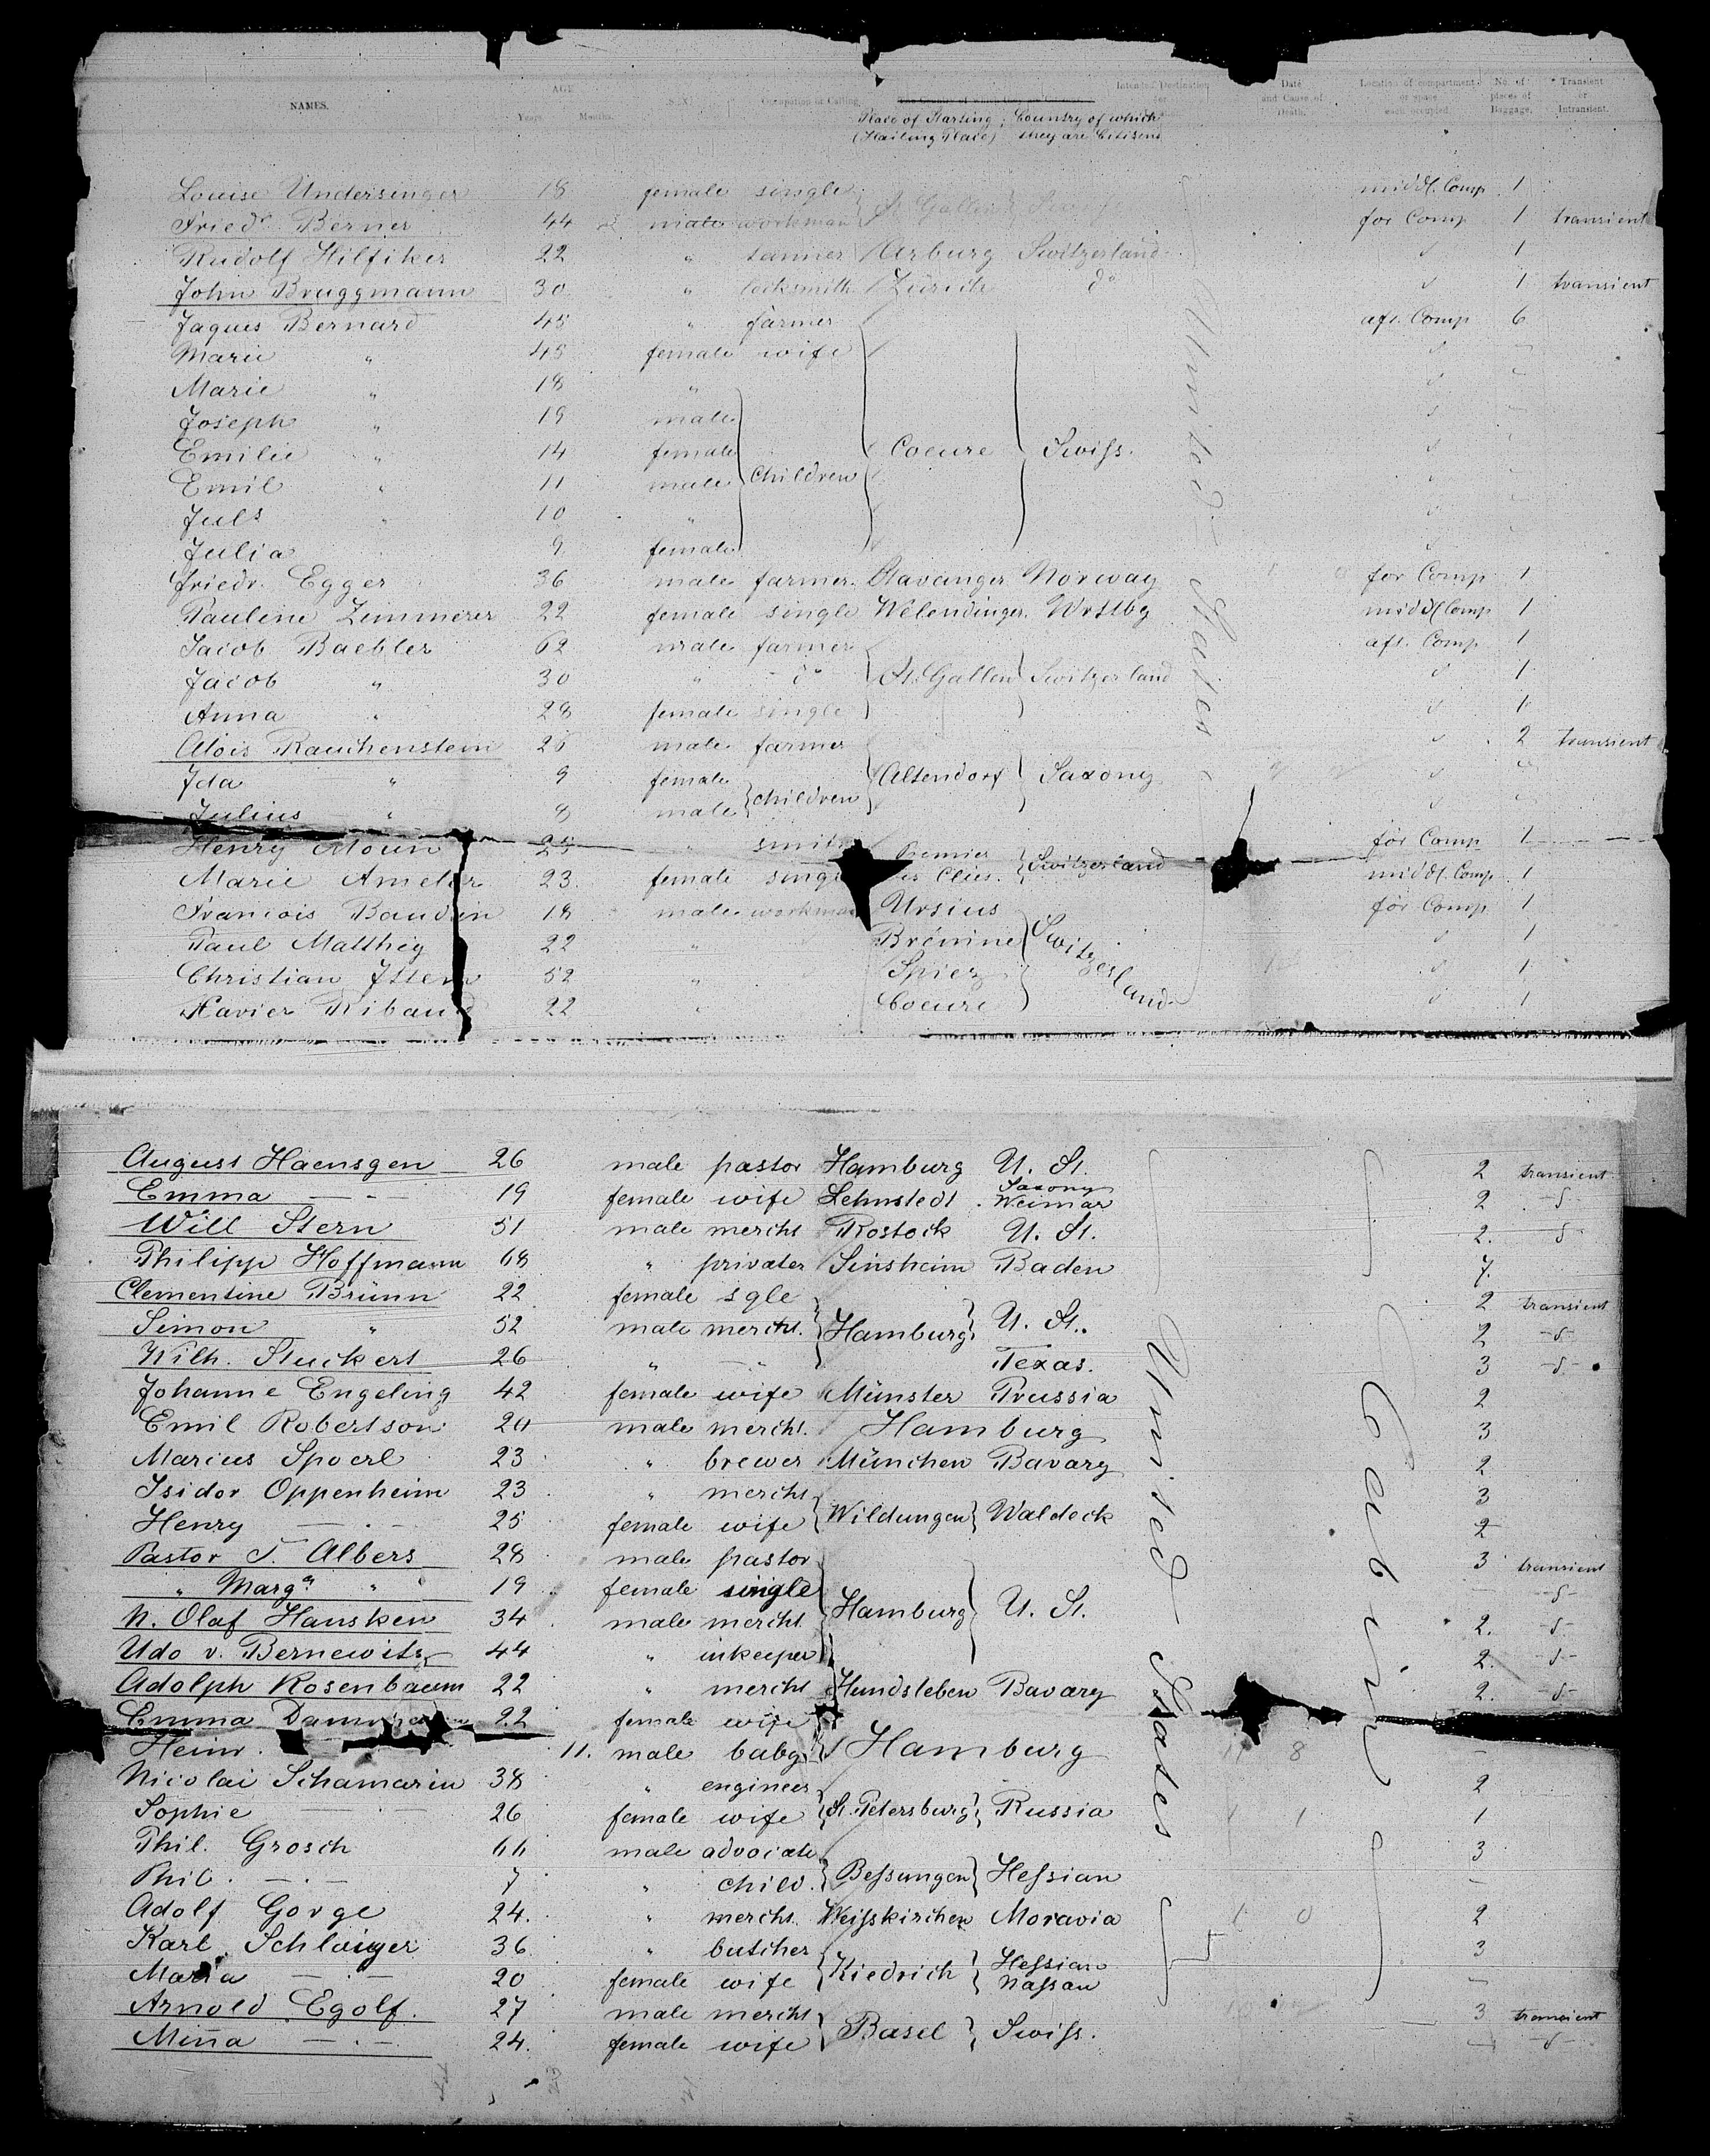 NAMES. AGE Years. Months. SEX. Occupation or Calling. Intended Destination Date and Cause of Death. Location of compartment or space each occupied. No. of pieces of Baggage. * Transient or Intransient.
Place of Starting (Hailing Place) ; Country of which they are Citizens
Louise Undersinger 18 female single middl. Comp 1
Friedr Berner 44 male workman St Gallen for Comp 1 transient
Rudolf Hilfiker 22 " tanner Arburg Switzerland " 1
John Bruggmann 30 " locksmith Zürich do " 1 transient
Jaques Bernard 45 " farmer aft. Comp 6
Marie " 45 female wife " "
Marie " 18 " " "
Joseph " 19 male " "
Emilie " 14 female Coeure Swiss. " "
Emil " 11 male Children " "
Juls " 10 " " "
Julia " 9 female " "
Friedr. Egger 36 male farmer. Stavanger Norway for Comp 1
Pauline Zimmerer 22 female single Welendinger. Wrttbg middl Comp 1
Jacob Baebler 62 male farmer aft. Comp 1
Jacob " 30 " do St. Gallen Switzerland " 1
Anna " 28 female single " 1
Alois Rauchenstein 25 male farmer " 2 transient
Ida " 9 female Altendorf Saxony " "
Julius " 8 male children " "
Henry 25 " smith Premier Switzerland for Comp 1
Marie Ameter 23. female single middl. Comp 1
Francois Baudin 18 male workman Ursius for Comp 1
Paul Matthey 22 " Brénine Switzerland " 1
Christian Itten 52 " Spiez " 1
Xavier Ribaud 22 " Coeure " 1
August Haensgen 26 male pastor Hamburg U. St. 2 transient
Emma — - — 19 female wife Lehnstedt Saxony Weimar 2 -"-
Will Stern 51 male mercht Rostock U. St. 2. -"-
Philipp Hoffmann 68 " privater Sinsheim Baden 7.
Clementine Brünn 22 female sgle 2 transient
Simon " 52 male mercht. Hamburg U. St. 2 -"-
Wilh. Stuckert 26 " -"- Texas. 3 -"-
Johanne Engeling 42 female wife Münster Prussia 2
Emil Robertson 20 male mercht. Hamburg 3
Marius Spoerl 23 " brewer München Bavary 2
Isidor Oppenheim 23 " mercht 3
Henry — . — 25 female wife Wildungen Waldeck 2
Pastor J. Albers 28 male pastor 3 transient
" Marga " 19 female single -"-
N. Olaf Hansken 34 male mercht. Hamburg U. St. 2. -"-
Udo v. Bernewitz 44 " inkeeper 2. -"-
Adolph Rosenbaum 22 " mercht Hundsleben Bavary 2. -"-
Emma 22 female wife
Heinr. 11. male baby Hamburg 11 8 —
Nicolai Schamarin 38 " engineer 2
Sophie — . — 26 female wife St. Petersburg Russia 1 1 1
Phil. Grosch 66 male advocate 3
Phil. — . — 7 " child. Bessungen Hessian —
Adolf Gorge 24. " mercht. Weisskirchen Moravia 1 0 2
Karl Schlaiger 36 " butcher 3
Maria — . — 20 female wife Kiedrich Hessian Nassau —
Arnold Egolf. 27 male mercht 3 transient
Mina — . — 24. female wife Basel Swiss. — -"-
United States
United States
Cabin